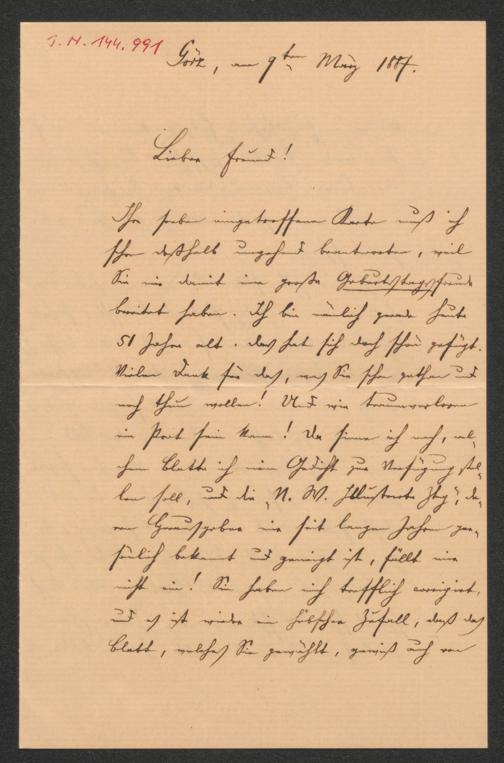 J. N. 144.991
Görz, am 9ten März 1887.
Lieber Freund!
Ihre soeben eingetroffene Karte muß ich
schon deßhalb umgehend beantworten, weil
Sie mir damit eine große Geburtstagsfreude
bereitet haben. Ich bin nämlich gerade heute
51 Jahre alt. das hat sich doch schön gefügt.
Vielen Dank für das, was Sie schon gethan und
noch thun wollen! Und wie traumverloren
ein Poet sein kann! Da sinne ich nach, wel-
chem Blatte ich mein Gedicht zur Verfügung stel-
len soll, und die „N. W. Illustrirte Ztg", de-
ren Herausgeber mir seit langen Jahren per-
sönlich bekannt und geneigt ist, fällt mir
nicht ein! Sie haben mich trefflich corrigirt,
und es ist wieder ein hübscher Zufall, daß das
Blatt, welches Sie gewählt, gewiß auch von